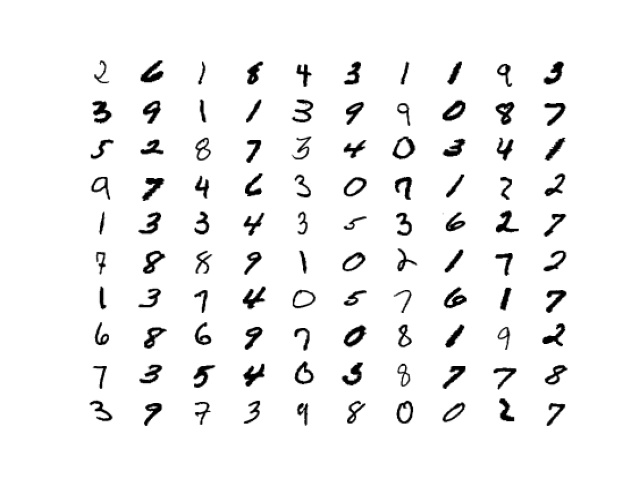 2 6 1 8 4 3 1 1 9 3
3 9 1 1 3 9 9 0 8 7
5 2 8 7 3 4 0 3 4 1
9 7 4 6 3 0 7 1 2 2
1 3 3 4 3 5 3 6 2 7
7 8 8 9 1 0 2 1 7 2
1 3 7 4 0 5 7 6 1 7
6 8 6 9 7 0 8 1 9 2
7 3 5 4 0 3 8 7 7 8
3 9 7 3 9 8 0 0 2 7